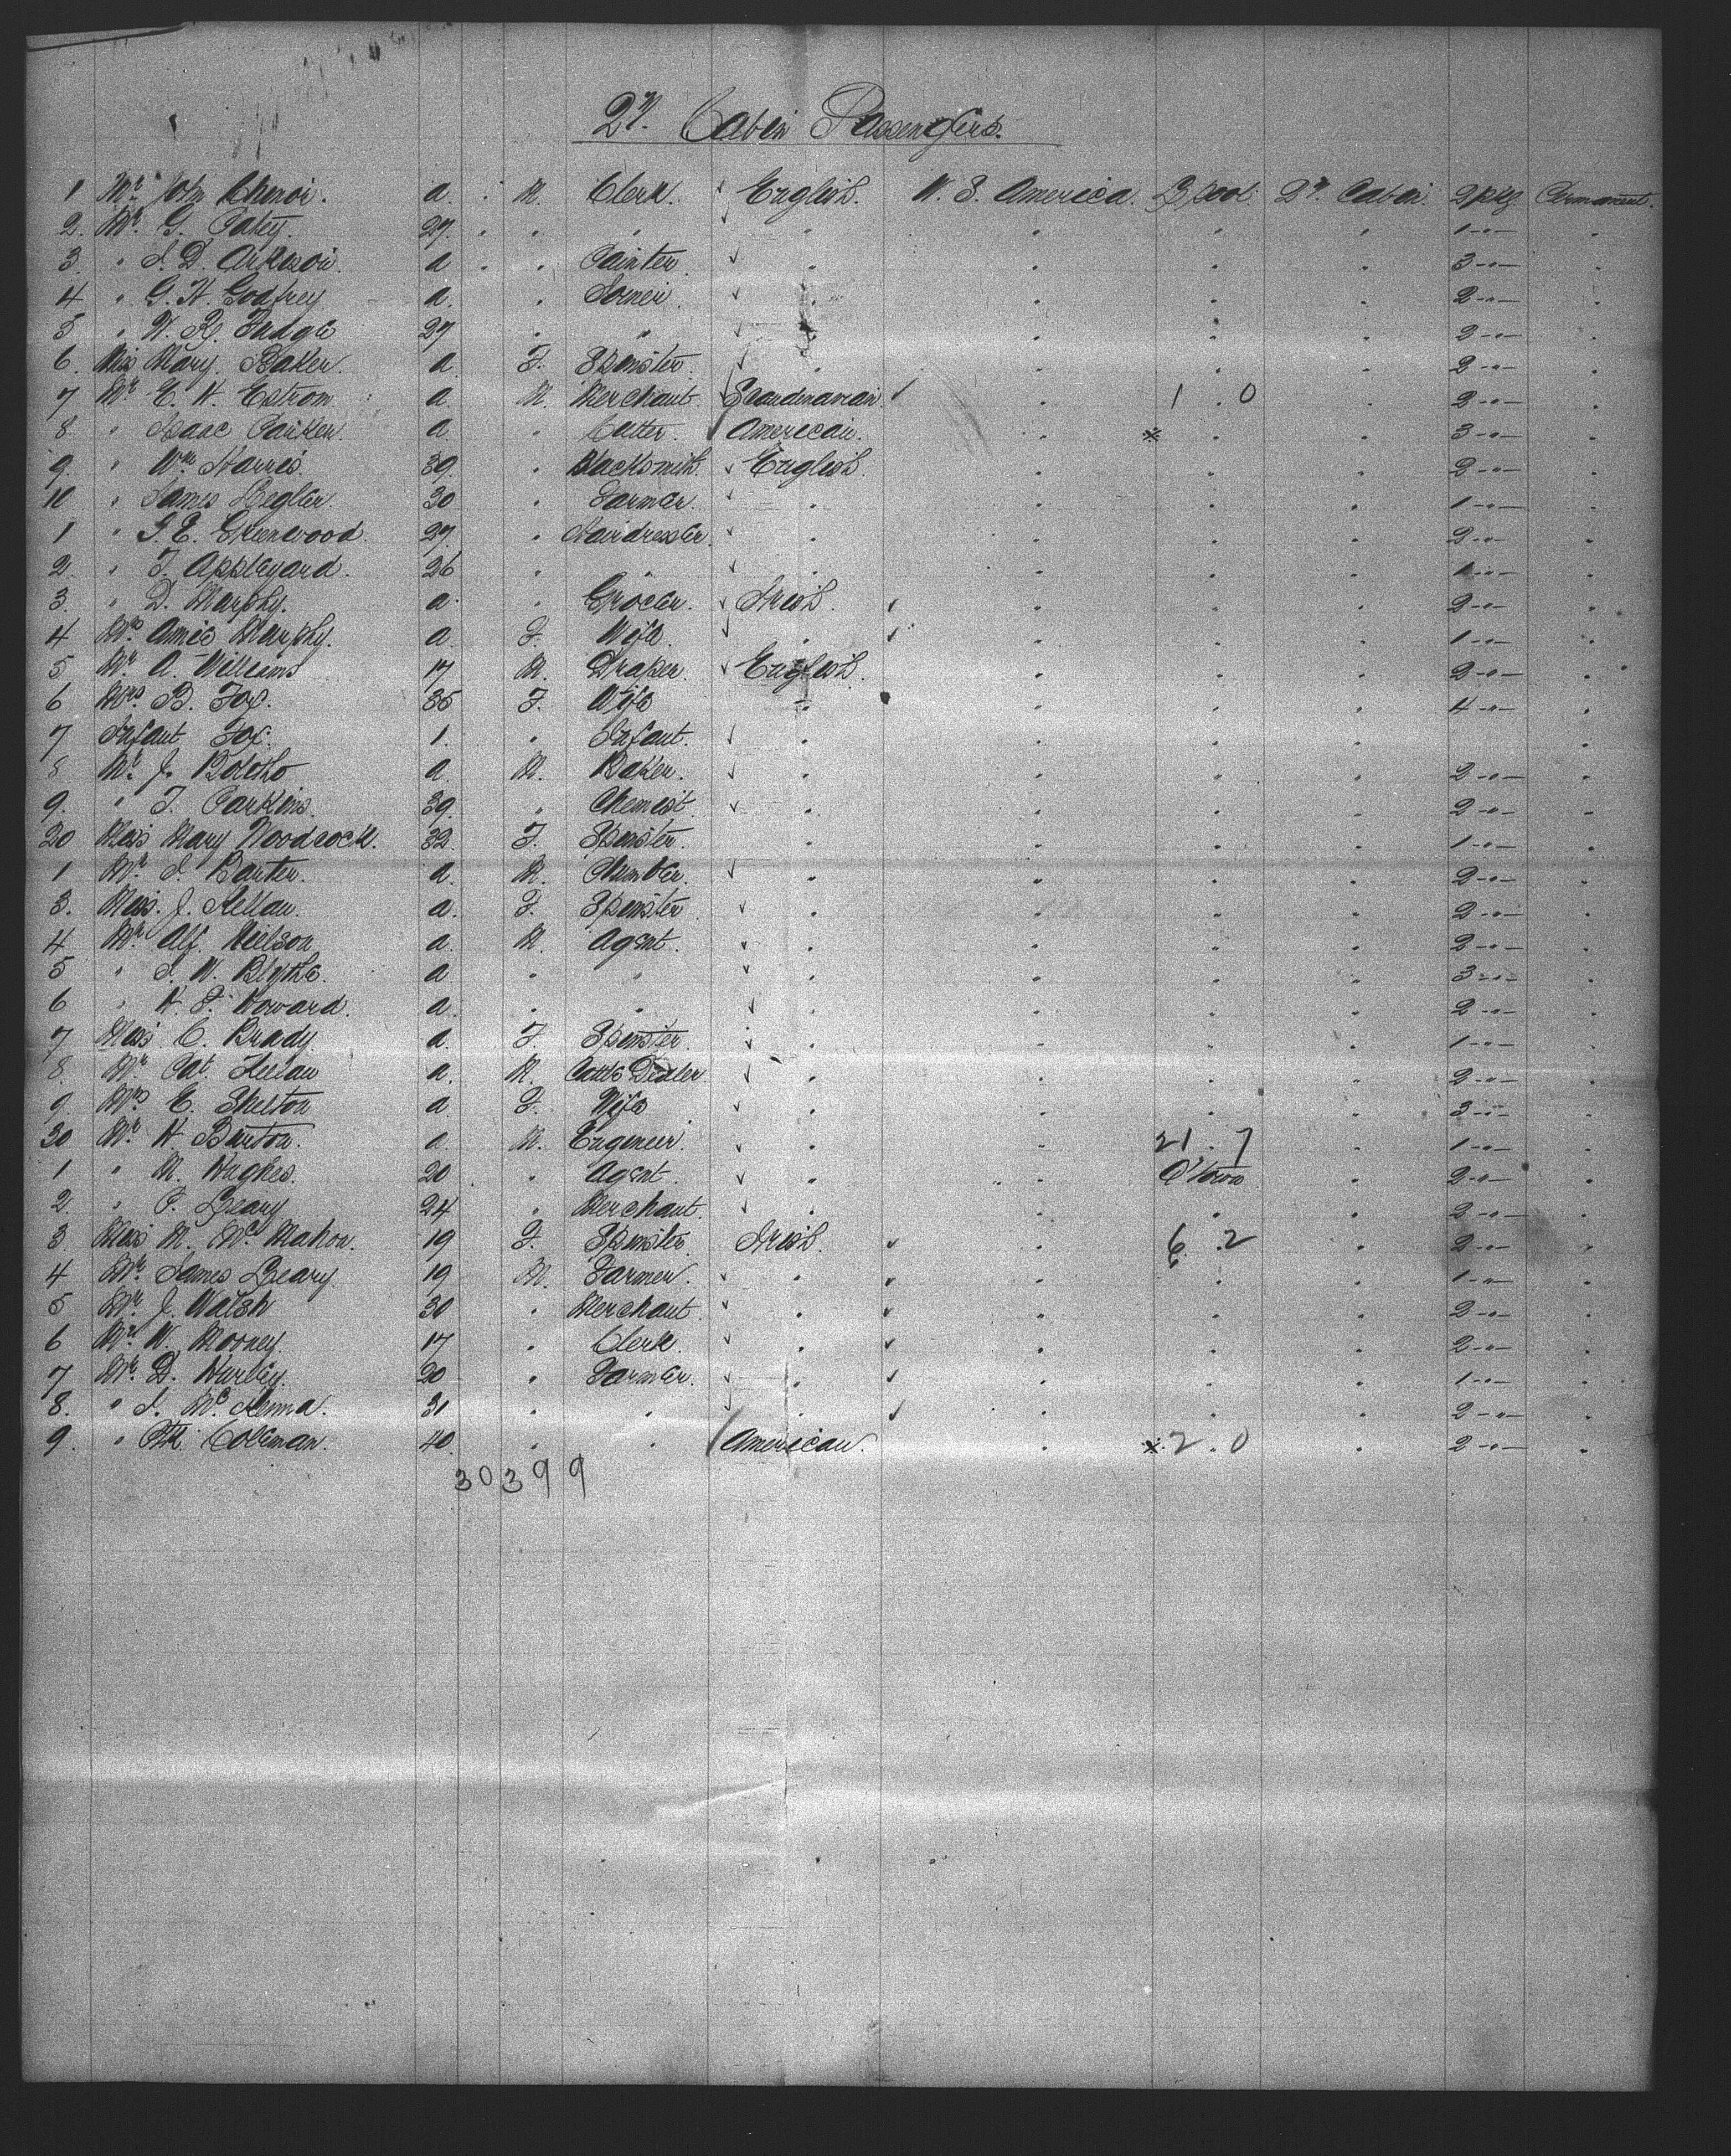 2nd. Cabin Passengers.
1 Mr. John a. M. Clerk. English. U. S. America. L'pool. 2nd. Cabin. 2 pkg. Permanent.
2. Mr. G. 27. " " " " " " 1 -"- "
3. " J. D. a " Painter " " " " 3 -"- "
4 " G. H. Godfrey a. " " " " " 2 -"- "
5 " W. R. Fudge 27 " " " " " " 2 -"- "
6. Miss Mary. Baker. a. F. Spinster. " " " " 2 -"- "
7 Mr. E. H. Estrom a. M. Merchant. Scandinavian " 1 . 0 " 2 -"- "
8. " Isaac a. " Cutter. American. " * " " 3 -"- "
9. " Wm. Harris. 39. " Blacksmith. English. " " " 2 -"- "
10 " James 30 " Farmer. " " " " 1 -"- "
1 " G. E. Greenwood. 27. " Hairdresser. " " " " 2 -"- "
2. " T. Appleyard. 26 " " " " " " 1 -"- "
3. " D. Murphy. a. " Grocer. Irish. " " " 2 -"- "
4 Mrs. Amie Murphy. a. F. Wife. " " " " 1 -"- "
5 Mr. A. Williams 17 M. Draper. English. " " " 2 -"- "
6 Mrs. B. Fox. 35 F. Wife " " " " 4 -"- "
7 Infant Fox. 1. " Infant. " " " " "
8 Mr. J. Bolitho a. M. Baker. " " " " 2 -"- "
9. " T. Parkins. 39. " Chemist. " " " " 2 -"- "
20 Miss Mary Woodcock. 32. F. Spinster. " " " " 1 -"- "
1 Mr. J. Baxter. a. M. Plumber. " " " " 2 -"- "
3. Miss. J. a. F. Spinster " " " " 2 -"- "
4 Mr. Alf. Neilson a. M. Agent. " " " " 2 -"- "
5 " J. W. Blythe. a " " " " " " 3 -"- "
6 " H. F. Howard. a. " " " " " " 2 -"- "
7 Miss C. Brady. a. F. Spinster. " " " " 1 -"- "
8. Mr. Pat. a. M. Cattle Dealer. " " " " 2 -"- "
9. Mrs. E. Shelton a. F. Wife " " " " 3 -"- "
30 Mr. H. a. M. Engineer. " " 21 . 7 " 1 -"- "
1 " M. Hughes. 20 " Agent. " " Q'town " 2 -"- "
2. " P. Leary 24 " Merchant. " " " " 2 -"- "
3. Miss M. McMahon. 19 F. Spinster. Irish. " 6 . 2 " 2 -"- "
4 Mr. James Leary. 19 M. Farmer. " " " " 1 -"- "
5 Mr. J. Walsh 30 " Merchant. " " " " 2 -"- "
6 Mr. W. Mooney. 17 " Clerk. " " " " 2 -"- "
7 Mr. D. Hurley. 20 " Farmer. " " " " 1 -"- "
8. " J. McKenna. 31 " " " " " " 2 -"- "
9. " Coleman. 40. " " American. " * 2 . 0 " 2 -"- "
30399